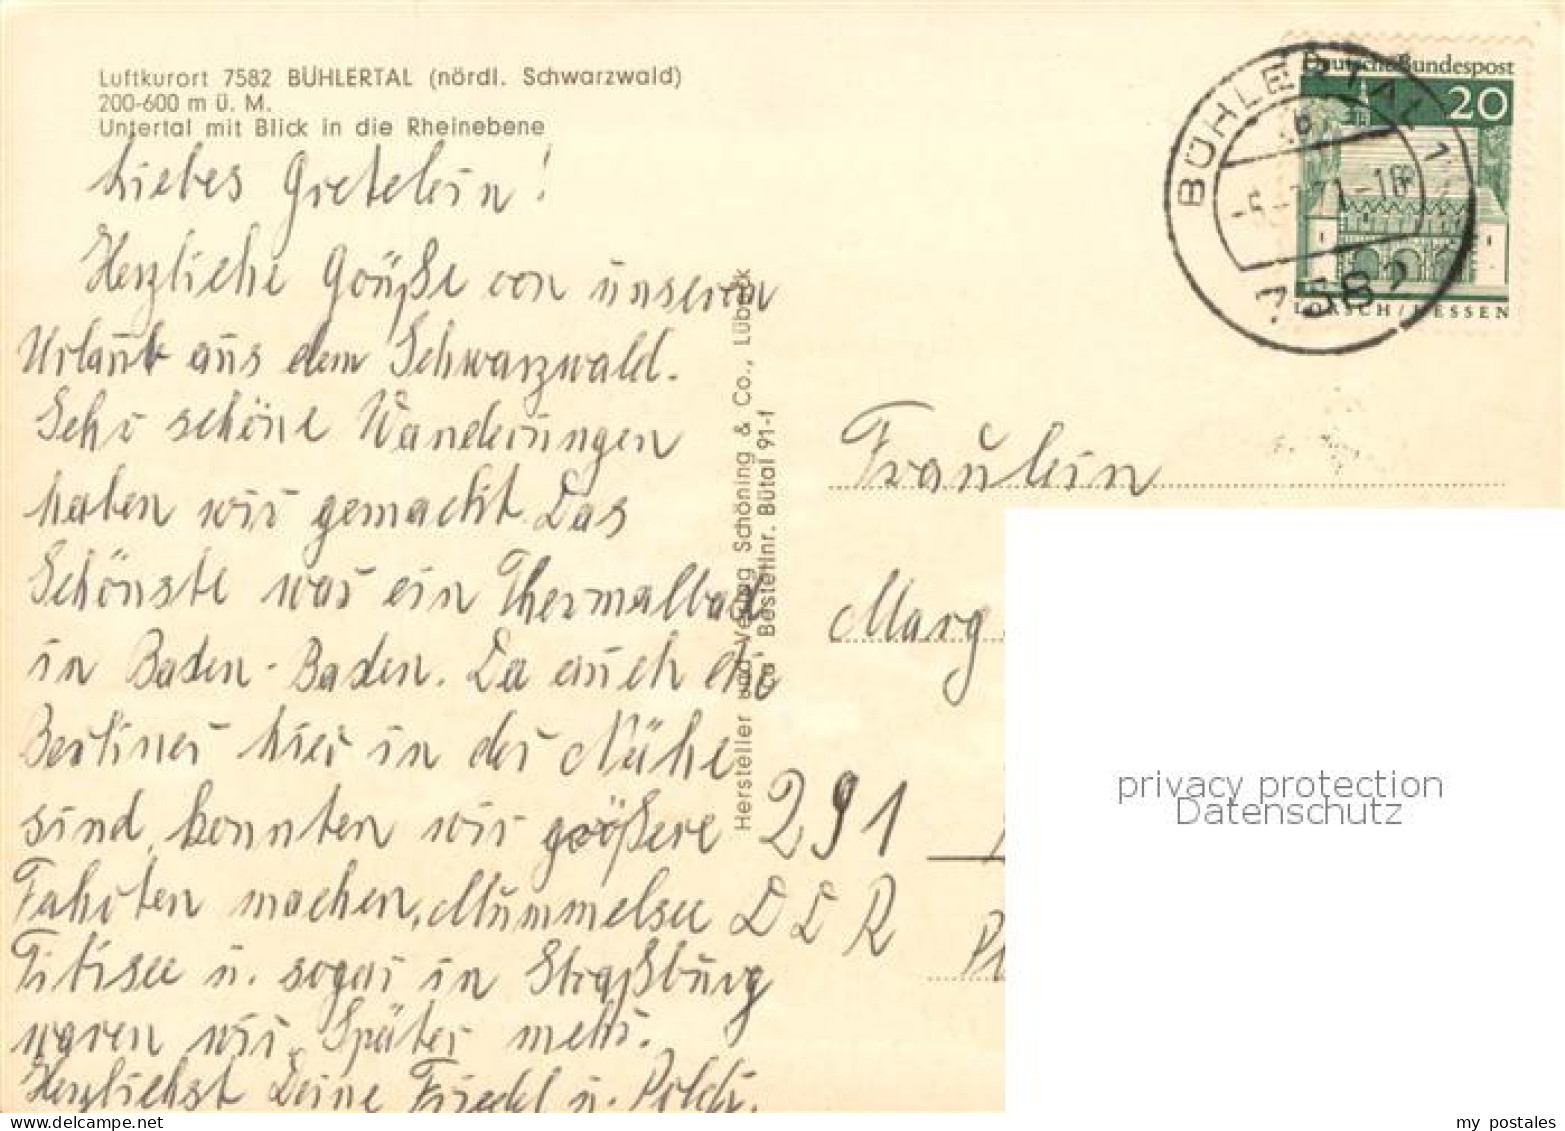 Luftkurort 7582 BÜHLERTAL (nördl. Schwarzwald)
200-600 m ü. M.
Untertal mit Blick in die Rheinebene
Liebes Gretelein!
Herzliche Grüße von unserem
Urlaub aus dem Schwarzwald.
Sehr schöne Wanderungen
haben wir gemacht. Das
Schönste war ein Thermalbad
in Baden-Baden. Da auch die
Berliner hier in der Nähe
sind, konnten wir größere
Fahrten machen, Mummelsee
Titisee u. sogar in Straßburg
waren wir. Später mehr.
Herzlichst Deine Friedel u. Poldi.
Hersteller und Verlag Schöning & Co., Lübeck
Bestellnr. Bütal 91-f
Deutsche Bundespost
20
LORSCH/HESSEN
BÜHLERTAL 1
b
7582
Fräulein
Marg
291
DDR
privacy protection
Datenschutz
my postales